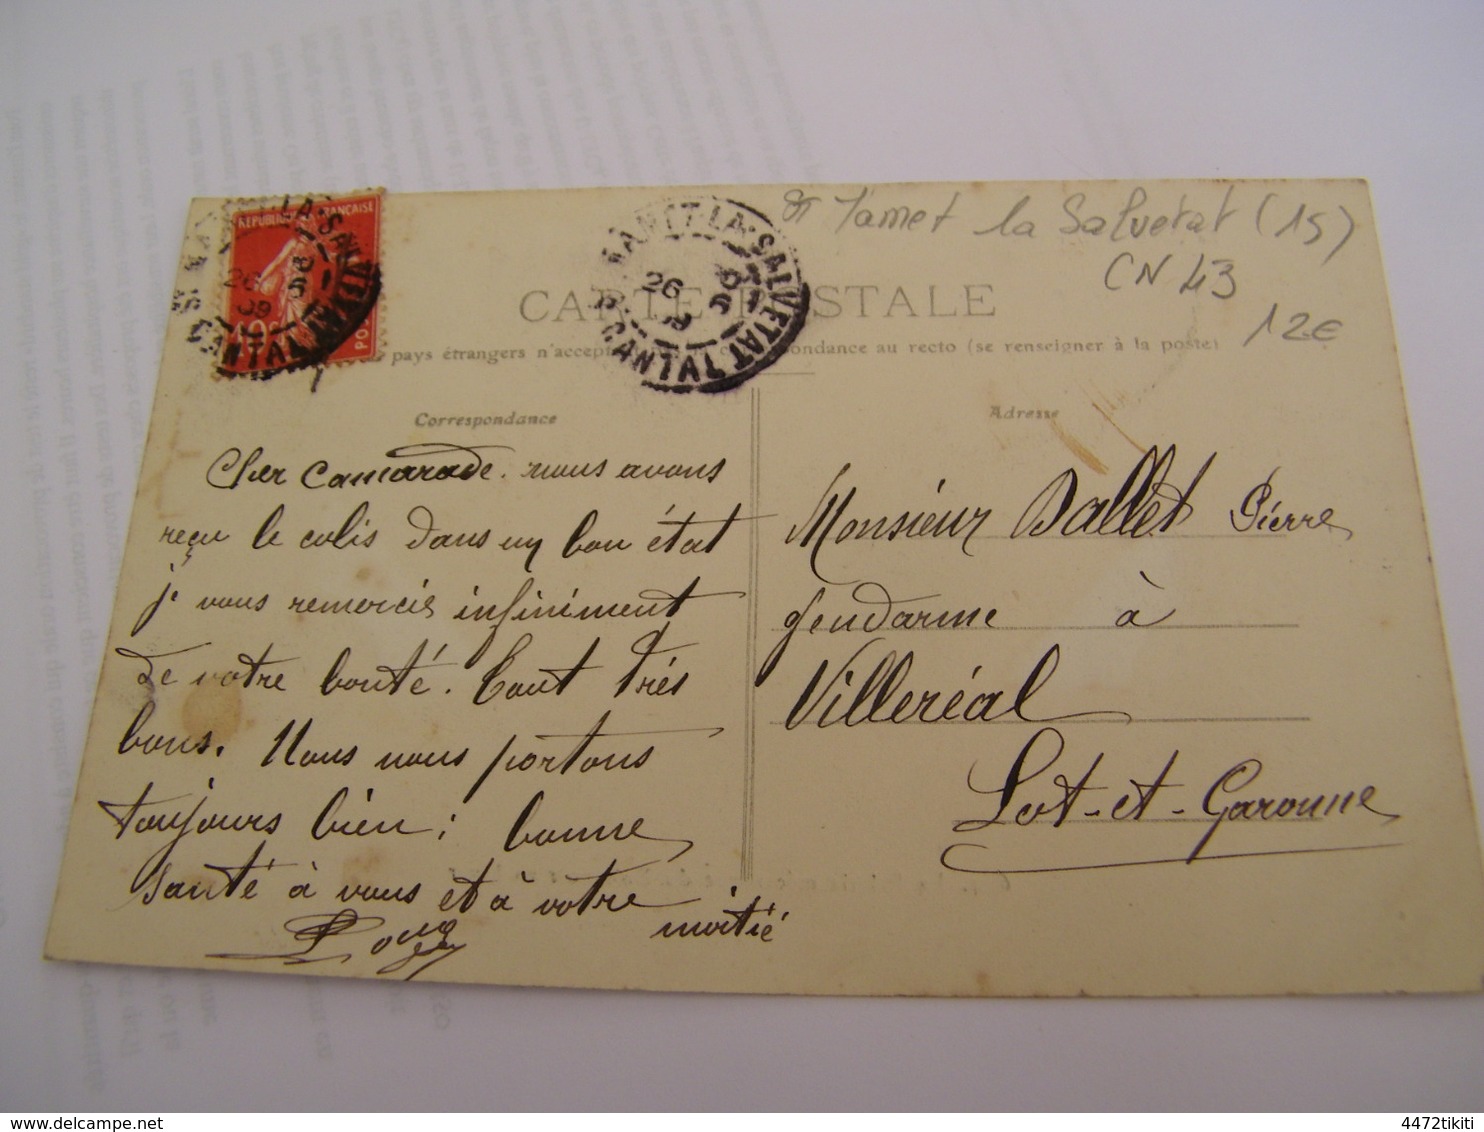 St Mamet la Salvetat (15)
CN 43
12€
REPUBLIQUE FRANÇAISE
MAMET-LA-SALVETAT
26
09
CANTAL
CARTE POSTALE
pays étrangers n'accep correspondance au recto (se renseigner à la poste)
Correspondance
Adresse
Cher camarade. nous avons
reçu le colis dans un bon état
je vous remercie infiniment
de votre bonté. Tout très
bons. Nous nous portons
toujours bien ; bonne
santé à vous et à votre
moitié
Monsieur Dallet Pierre
gendarme à
Villeréal
Lot-et-Garonne
4472tikiti